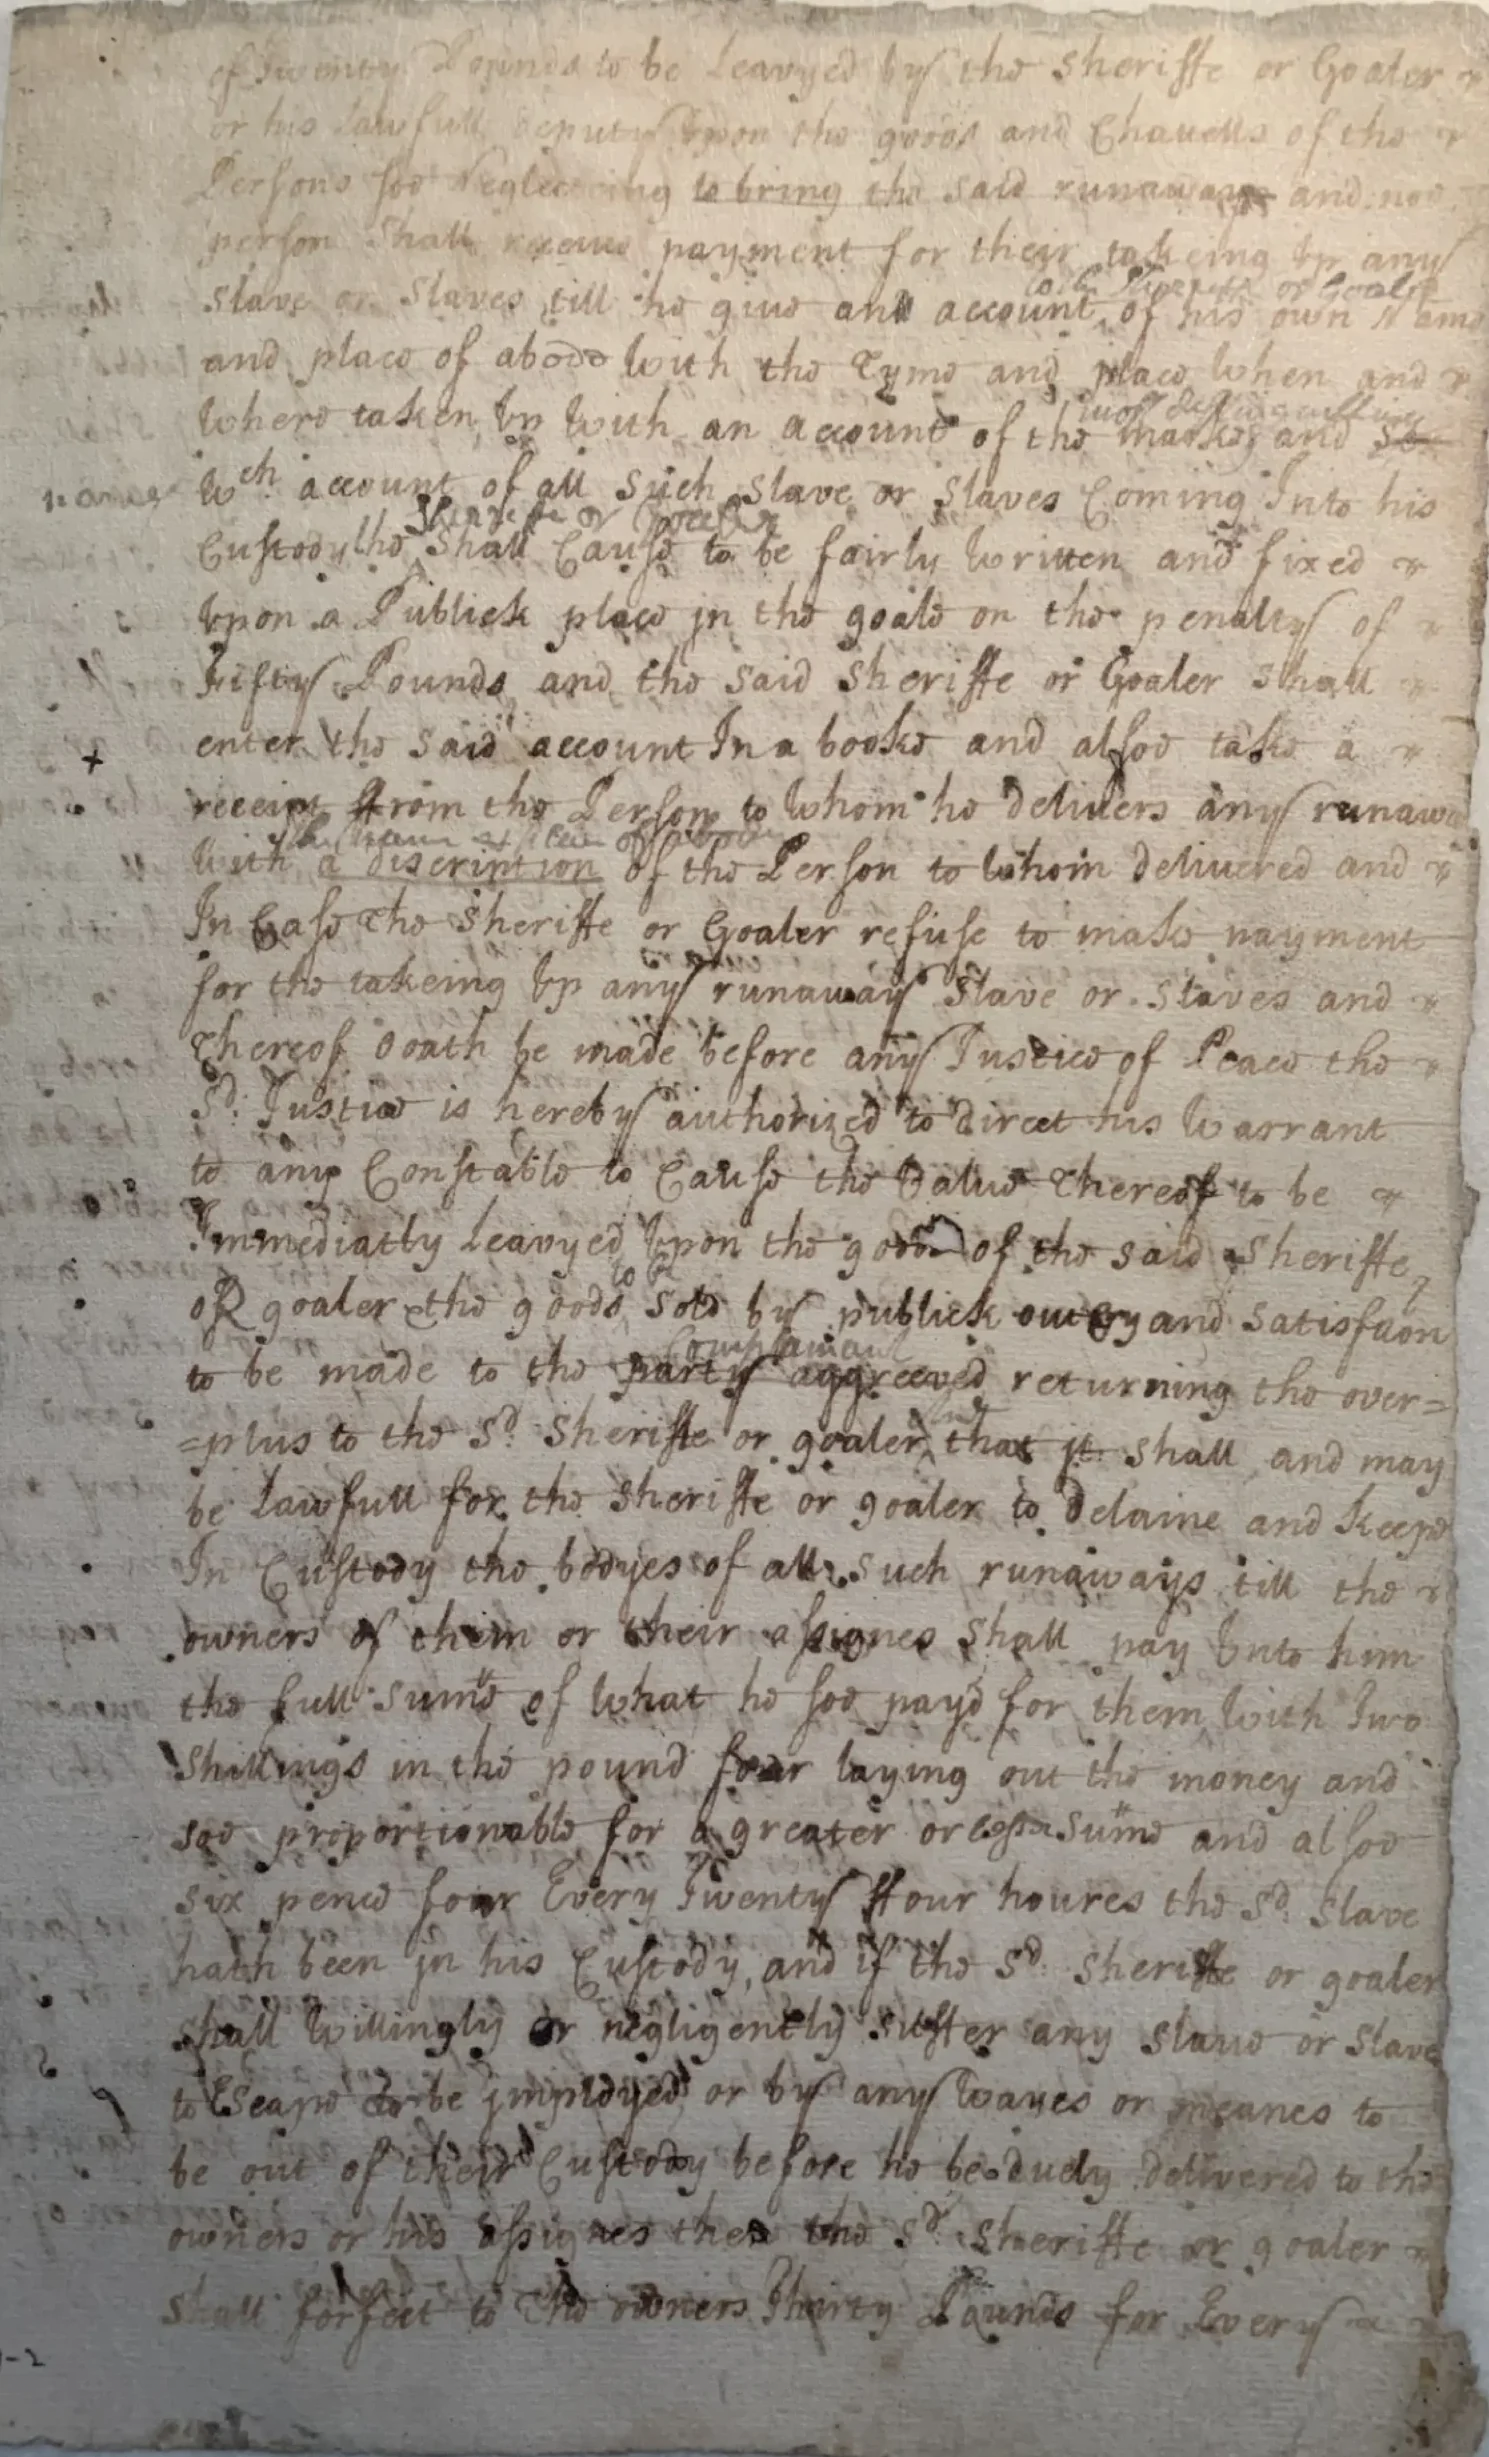 of Twenty Pounds to be Leavyed by the Sheriffe or Goaler
or his Lawfull deputy Upon the goods and Chattells of the
Persons soe Neglecting to bring the said runaways and noe
person Shall receive payment for their takeing Up any
to the Sheriffe or Goaler
Slave or Slaves till he give an account of his own Name
and place of abode With the Tyme and place When and
most distinguishing
Where taken Up With an account of the markes and
names
Wch account of all such Slave or Slaves Coming Into his
Sheriffe or Goaler
Custody the Shall Cause to be fairly Written and fixed
Upon a Publick place jn the goale on the penalty of
Fifty Pounds and the said Sheriffe or Goaler Shall
enter the said account In a booke and alsoe take a
receipt ffrom the Person to Whom he delivers any runaway
the name & place of abode
With a discription of the Person to Whom delivered and
In Case the Sheriffe or Goaler refuse to make payment
for the takeing Up any runaway Slave or Slaves and
Thereof Ooath be made before any Justice of Peace the
Sd: Justice is hereby authorized to direct his Warrant
to any Constable to Cause the Value Thereof to be
Immediatly Leavyed Upon the goods of the said Sheriffe
to be
oR goaler the goods sold by publick outcry and satisfacon
Complainant
to be made to the party aggreeved returning the over=
and
=plus to the Sd: Sheriffe or goaler that jt shall and may
be Lawfull for the Sheriffe or goaler to Detaine and Keepe
In Custody the bodyes of all such runaways till the
owners of them or their assignes Shall pay Unto him
the full sume of What he soe payd for them With Two
Shillings in the pound foar laying out the money and
soe proportionable for a greater or lesser sume and alsoe
six pence foar Every Twenty ffour houres the Sd: Slave
hath been jn his Custody, and if the Sd: Sheriffe or goaler
shall Willingly or negligently suffer any slave or slave
to Escape to be jmployed or by any Wayes or meanes to
be out of their Custody before he be duely delivered to the
owners or his assignes then the Sd: Sheriffe or goaler
Shall forfeit to The owners Thirty Pounds for Every